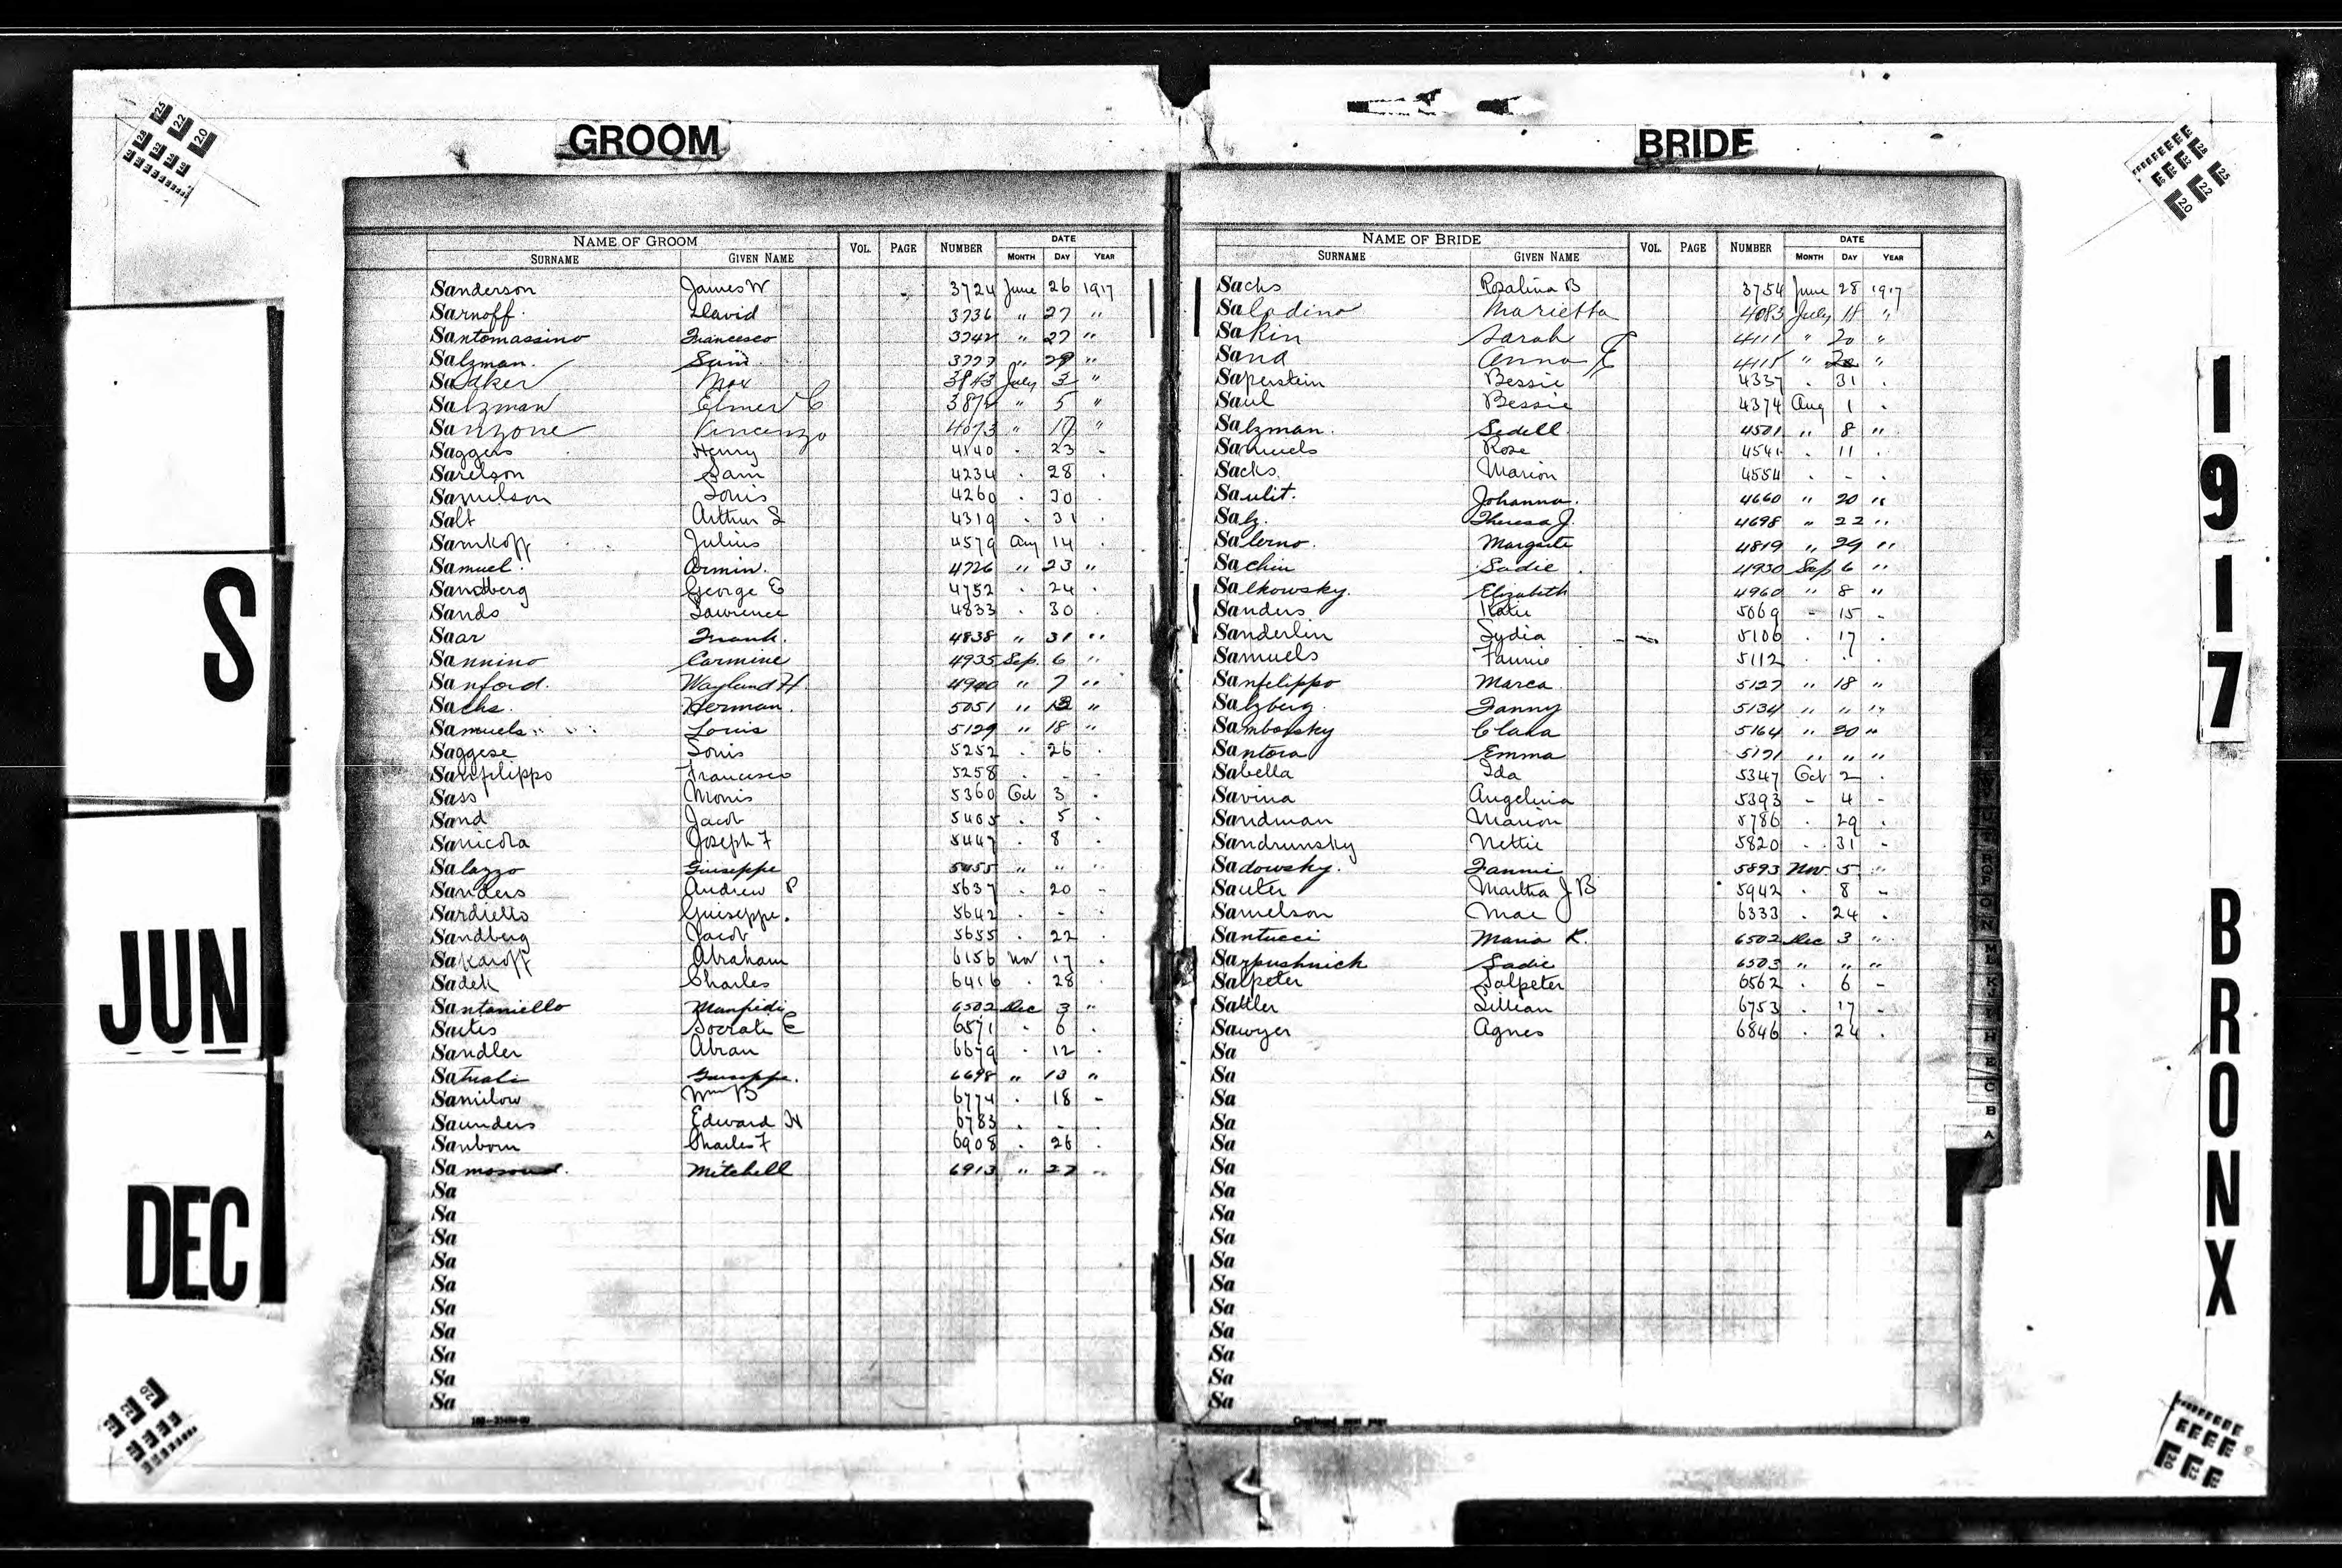 GROOM
NAME OF GROOM
SURNAME GIVEN NAME VOL. PAGE NUMBER DATE MONTH DAY YEAR
Sanderson James W 3724 June 26 1917
Sarnoff. David 3736 " 27 "
Santomassino Francesco 3742 " 27 "
Salzman. Sam 3777 " "
Max July 3 "
Salzman Elmer C " 5 "
Sanzone Vincenzo 4073 " "
Saggers Henry 4140 . 23 -
Sarelson Sam 4234 . 28 .
Samulson Louis 4260 . 30 .
Salt Arthur S 4319 . 31 .
Julius 4579 Aug 14 .
Samuel. Armin. 4726 " 23 "
Sandberg George E 4752 . 24 .
Sands Lawrence 4833 . 30 .
Saar Frank. 4838 " 31 "
Sannino Carmine 4935 Sep. 6 "
Sanford. Wayland H. 4940 " 7 "
Sachs. Herman. 5051 " "
Samuels Louis 5129 " 18 "
Saggese Louis 5252 . 26 .
Sanfilippo Francesco 5258 . - .
Sass Morris 5360 Oct 3 .
Sand Jacob 5405 . 5 .
Sanicola Joseph F 5447 . 8 .
Salazzo Giuseppe 5455 " " "
Sanders Andrew P 5637 . 20 -
Sardiello Guiseppe. 5642 . - .
Sandberg Jacob 5655 . 22 .
Sakaroff Abraham 6156 Nov 17 .
Sadek Charles 6416 . 28 .
Santaniello Manfredi 6502 Dec 3 "
Socrate E 6571 . 6 .
Sandler Abran 6679 . 12 .
Giuseppe. 6698 " 13 "
Samilow Wm B 6774 . 18 -
Saunders Edward N 6783 . - .
Sanborn Charles F 6908 . 26 .
Mitchell 6913 " 27 "
Sa
Sa
Sa
Sa
Sa
Sa
Sa
Sa
Sa
Sa
BRIDE
NAME OF BRIDE
SURNAME GIVEN NAME VOL. PAGE NUMBER DATE MONTH DAY YEAR
Sachs Rosalina B 3754 June 28 1917
Saladino Marietta 4083 July 18 "
Sakin Sarah 4111 " 20 "
Sand Anna E 4115 " 20 "
Saperstein Bessie 4337 . 31 .
Saul Bessie 4374 Aug 1 .
Salzman. Sedell 4501 " 8 "
Samuels Rose 4541 . 11 .
Sachs. Marion 4554 . - .
Saulit. Johanna. 4660 " 20 "
Salz. Theresa J. 4698 " 22 "
Salerno. Margarite 4819 " 29 "
Sachin Sadie. 4930 Sep 6 "
Salkowsky. Elizabeth 4960 " 8 "
Sanders Katie 5069 - 15 -
Sanderlin Lydia 5106 . 17 .
Samuels Fannie 5112 . . .
Sanfilippo Marea 5127 " 18 "
Salzberg. Fanny 5134 " " "
Samborsky Clara 5164 " 20 "
Santora Emma 5171 " " "
Sabella Ida 5347 Oct 2 .
Savina Angelina 5393 - 4 -
Sandman Marion 5786 . 29 .
Sandrunsky Nettie 5820 . 31 -
Sadowsky. Fannie 5893 Nov 5 "
Sauter Martha J B 5942 . 8 -
Samelson Mae 6333 . 24 .
Santucci Maria K. 6502 Dec 3 "
Sarpushnick Sadie 6503 " " "
Salpeter Salpeter 6562 . 6 -
Sattler Lillian 6753 . 17 .
Sawyer Agnes 6846 . 24 .
Sa
Sa
Sa
Sa
Sa
Sa
Sa
Sa
Sa
Sa
Sa
Sa
Sa
Sa
Sa
Sa
Continued next page
S
JUN
DEC
1917
BRONX